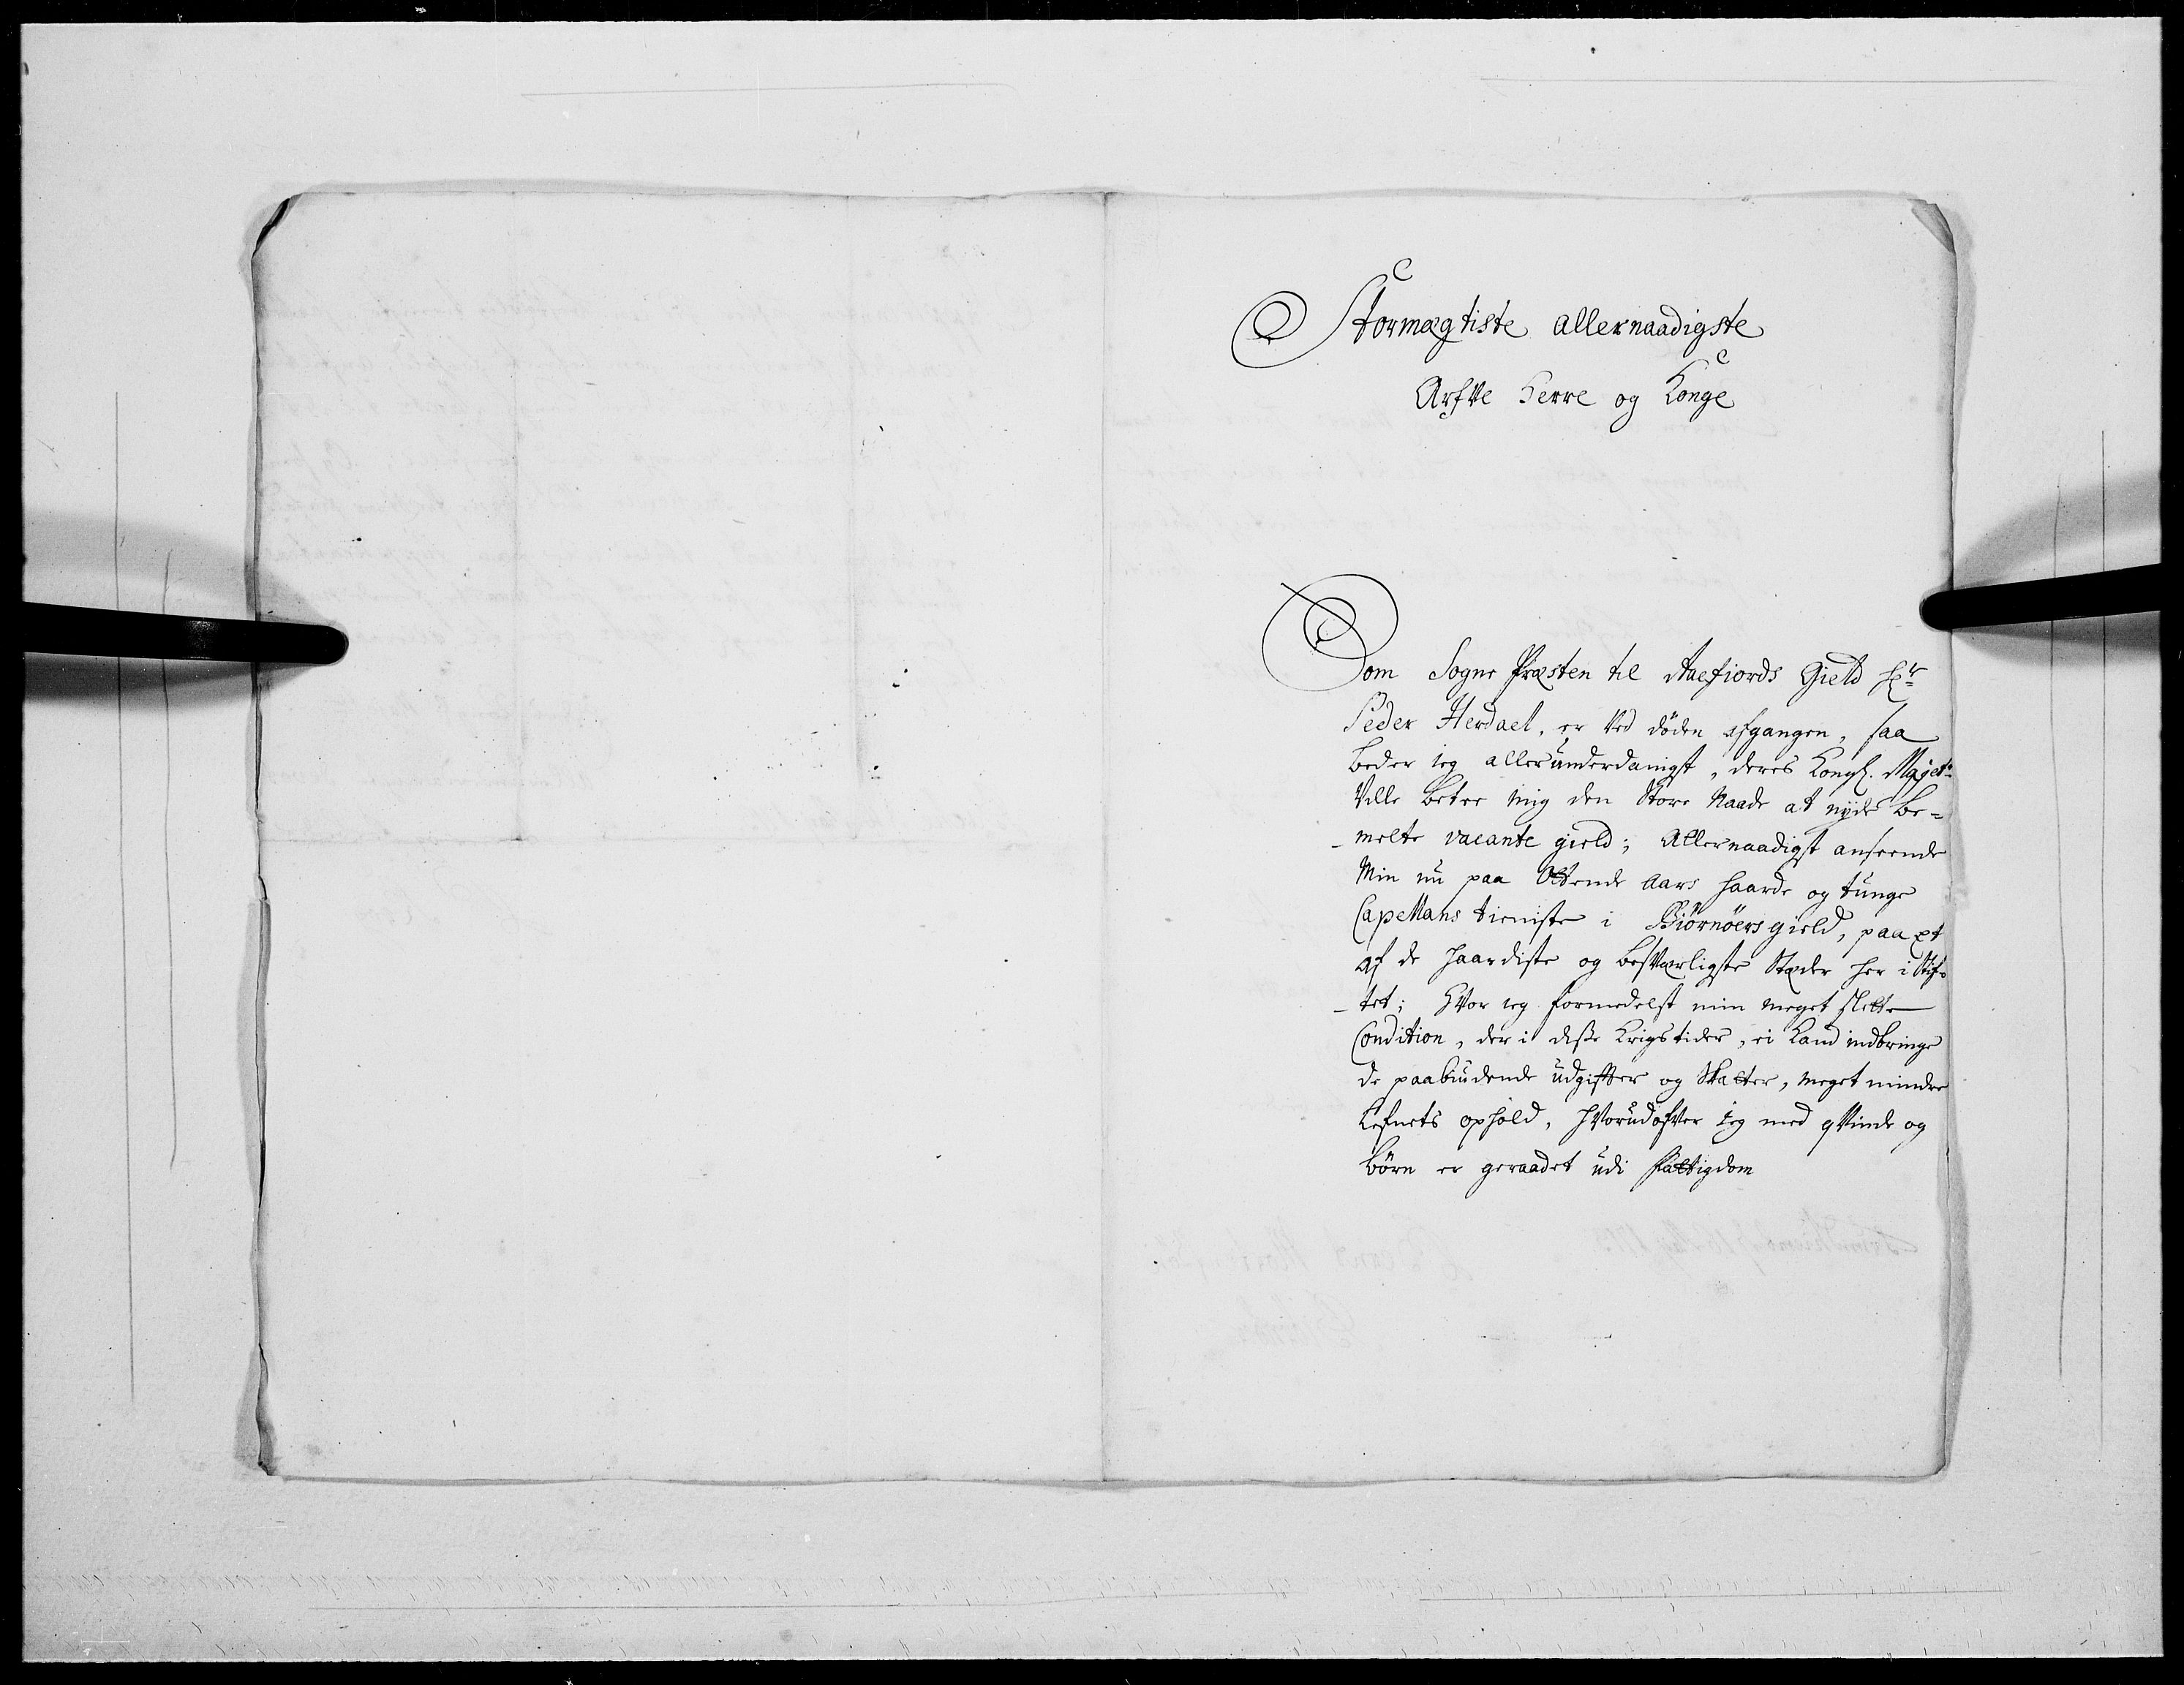 Stormægtiste Allernaadigste
Arfve Herre og Konge
Som Sogne Præsten til Aaefiords Gield Hr
Peder Herdael, er ved döden afgangen, saa
beder ieg allerunderdanigst, deres Kongl. Mayets
Ville betee mig den Store Naade at nyde be=
melte vacante gield; Allernaadigst anseende
Min nu paa Ottende Aars haarde og tunge
Capellans tieniste i Biörnöers gield, paa et
af de haardiste og besværligste Stæder her i Stif=
tet; Hvor ieg formedelst min meget slette
Condition, der i disse Krigstider, ei kand indbringe
de paabiudende udgiffter og Skatter, meget mindre
Lefnets ophold, hvorudofver ieg med qvinde og
börn er geraadet udi fattigdom